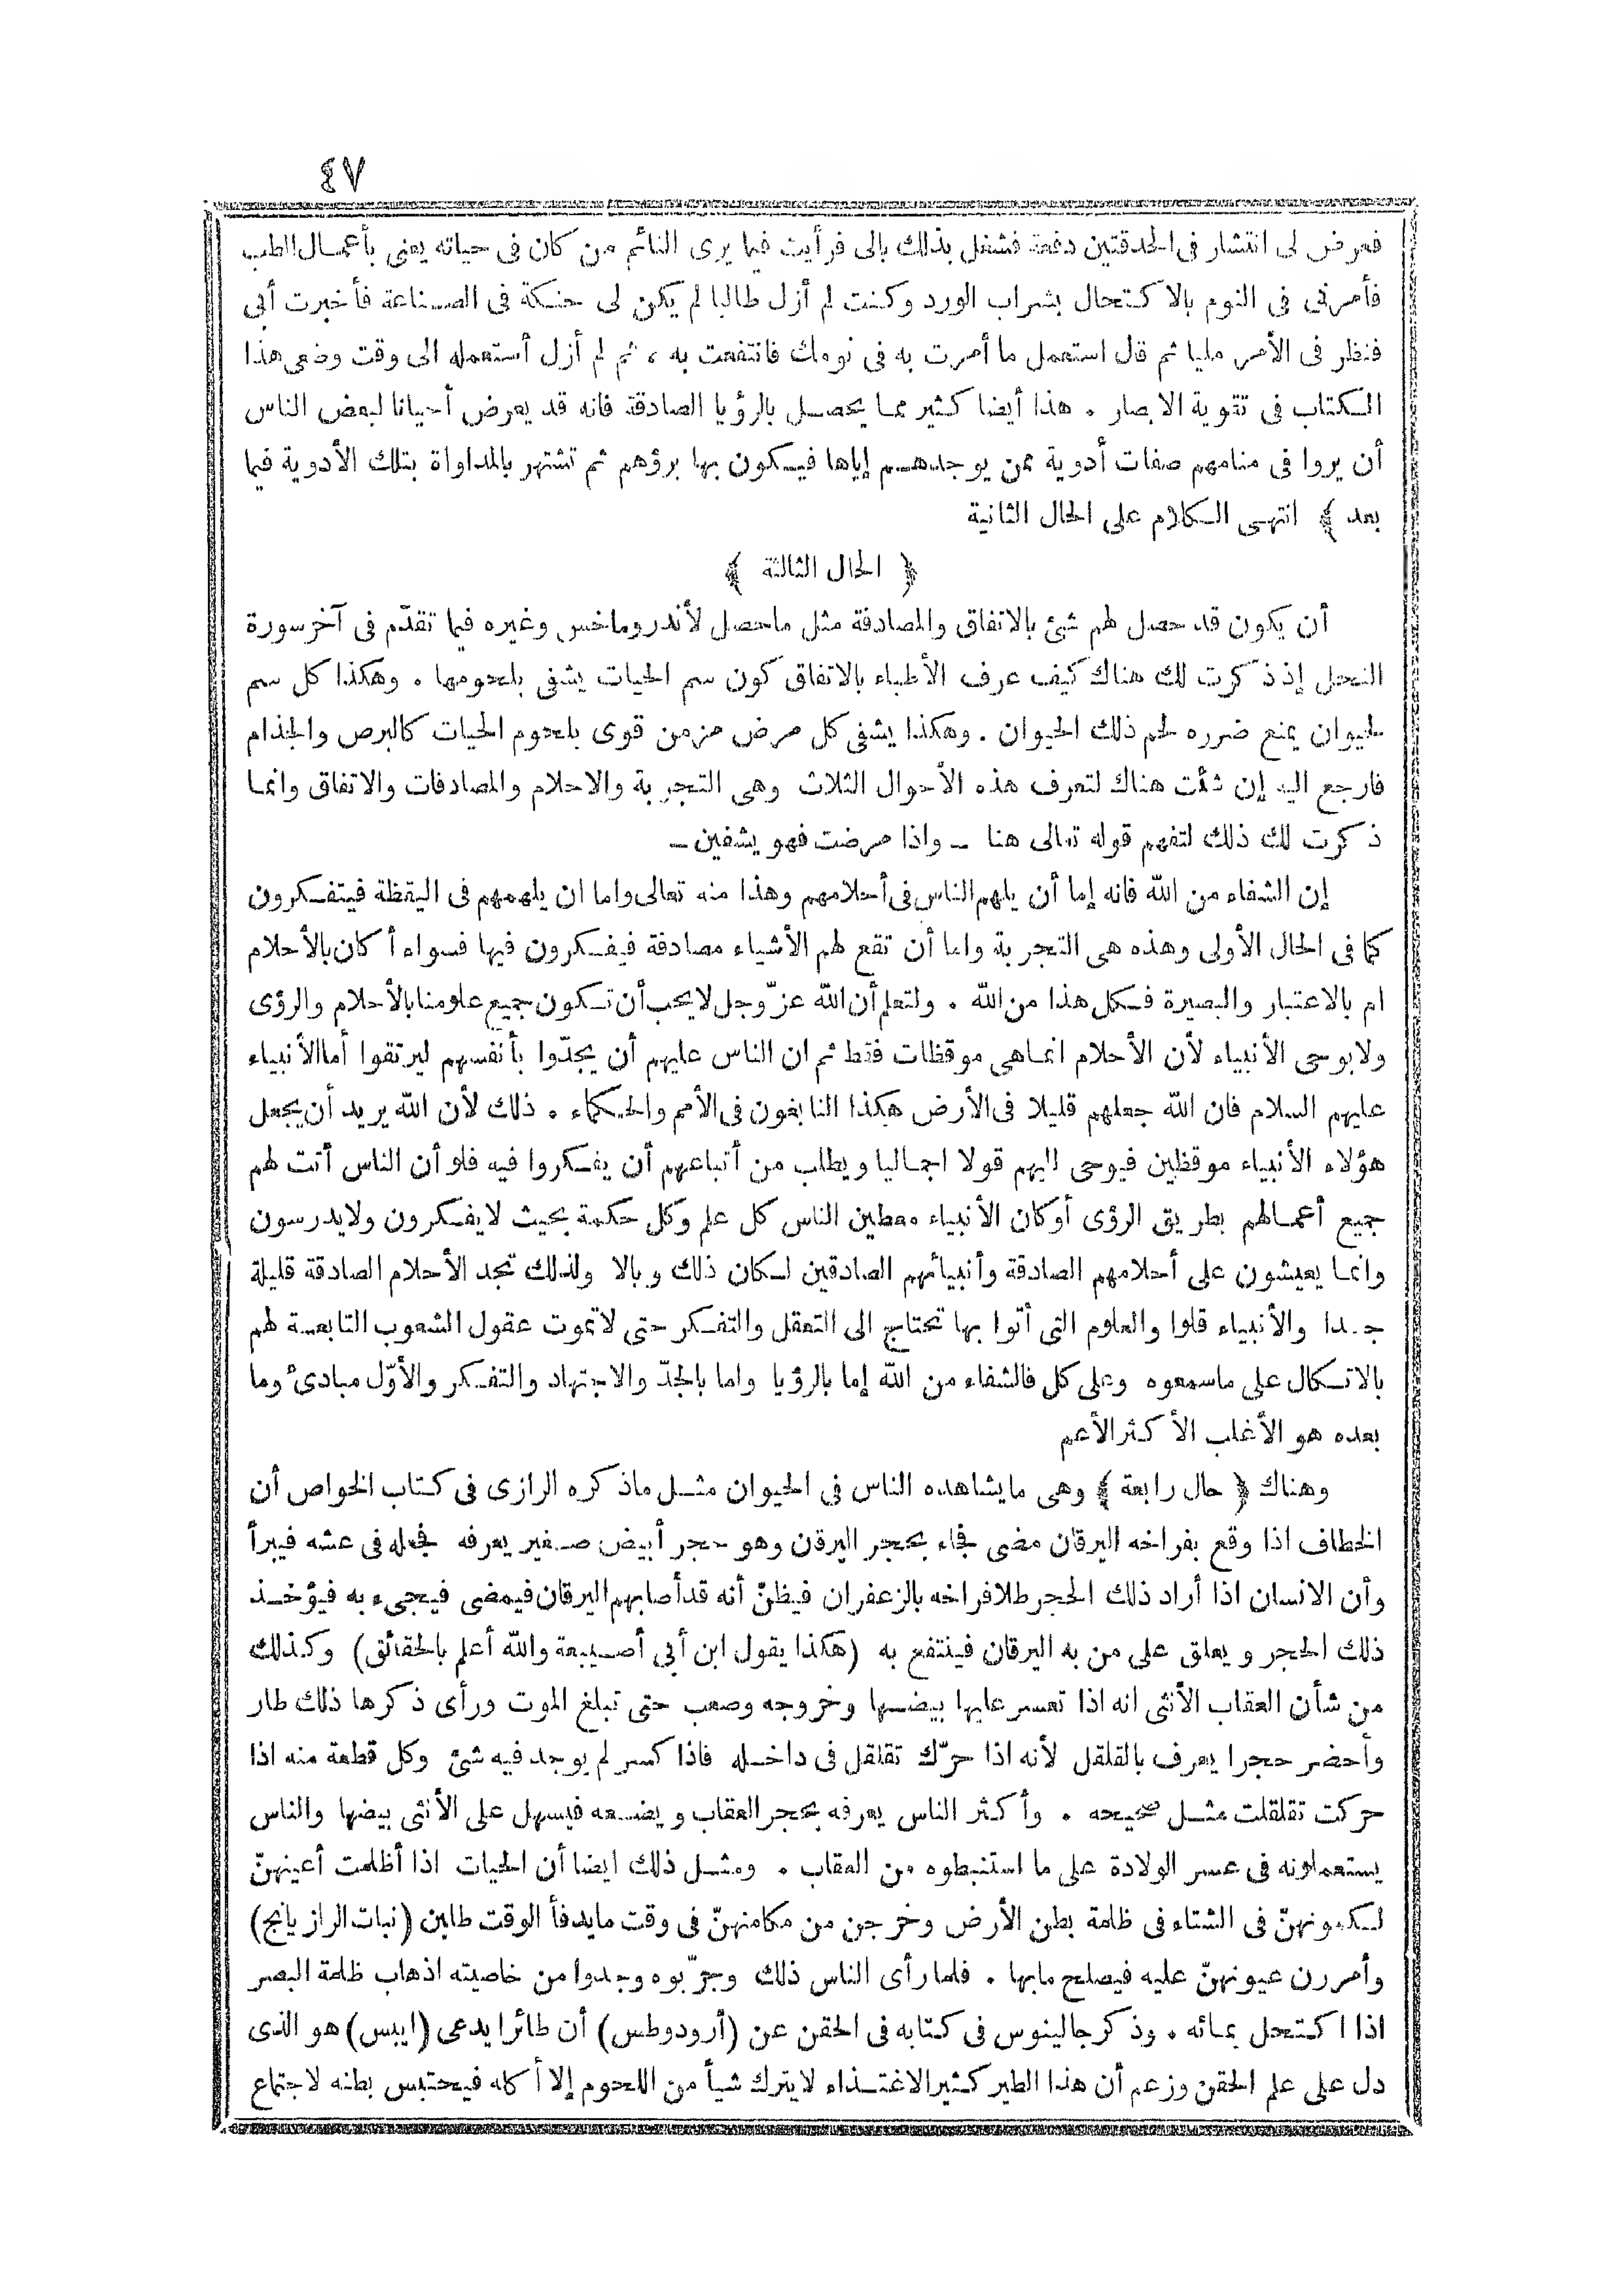 ٤٧
فعرض لى انتشار فى الحدقتين دفعة فشغل بذلك بالى فرأيت فيما يرى النائم من كان فى حياته يعنى بأعمال الطب
فأمرنى فى النوم بالاكتحال بشراب الورد وكنت لم أزل طالبا لم يكن لى حنكة فى الصناعة فأخبرت أبى
فنظر فى الأمر مليا ثم قال استعمل ما أمرت به فى نومك فانتفعت به ، ثم لم أزل أستعمله الى وقت وضعى هذا
الكتاب فى تقوية الابصار . هذا أيضا كثير مما يحصل بالرؤيا الصادقة فانه قد يعرض أحيانا لبعض الناس
أن يروا فى منامهم صفات أدوية ممن يوجدهم إياها فيكون بها برؤهم ثم تشتهر بالمداواة بتلك الأدوية فيما
بعد ﴾ انتهى الكلام على الحال الثانية
﴿ الحال الثالثة ﴾
أن يكون قد حصل لهم شئ بالاتفاق والمصادفة مثل ماحصل لأندروماخس وغيره فيما تقدّم فى آخر سورة
النحل إذ ذكرت لك هناك كيف عرف الأطباء بالاتفاق كون سم الحيات يشفى بلحومها . وهكذا كل سم
لحيوان يمنع ضرره لحم ذلك الحيوان . وهكذا يشفى كل مرض مزمن قوى بلحوم الحيات كالبرص والجذام
فارجع اليه إن شئت هناك لتعرف هذه الأحوال الثلاث وهى التجربة والاحلام والمصادفات والاتفاق وانما
ذكرت لك ذلك لتفهم قوله تعالى هنا ــ واذا مرضت فهو يشفين ــ
إن الشفاء من الله فانه إما أن يلهم الناس فى أحلامهم وهذا منه تعالى واما ان يلهمهم فى اليقظة فيتفكرون
كما فى الحال الأولى وهذه هى التجربة واما أن تقع لهم الأشياء مصادفة فيفكرون فيها فسواء أكان بالأحلام
ام بالاعتبار والبصيرة فكل هذا من الله . ولتعلم أن الله عزّ وجل لايحب أن تكون جميع علومنا بالأحلام والرؤى
ولابوحى الأنبياء لأن الأحلام انماهى موقظات فقط ثم ان الناس عليهم أن يجدّوا بأنفسهم ليرتقوا أما الأنبياء
عليهم السلام فان الله جعلهم قليلا فى الأرض هكذا النابغون فى الأمم والحكماء . ذلك لأن الله يريد أن يجعل
هؤلاء الأنبياء موقظين فيوحى اليهم قولا اجماليا ويطلب من أتباعهم أن يفكروا فيه فلو أن الناس أتت لهم
جميع أعمالهم بطريق الرؤى أوكان الأنبياء معطين الناس كل علم وكل حكمة بحيث لايفكرون ولايدرسون
وانما يعيشون على أحلامهم الصادقة وأنبيائهم الصادقين لكان ذلك وبالا ولذلك تجد الأحلام الصادقة قليلة
جدا والأنبياء قلوا والعلوم التى أتوا بها تحتاج الى التعقل والتفكر حتى لاتموت عقول الشعوب التابعة لهم
بالاتكال على ماسمعوه وعلى كل فالشفاء من الله إما بالرؤيا واما بالجدّ والاجتهاد والتفكر والأوّل مبادئ وما
بعده هو الأغلب الأكثر الأعم
وهناك ﴿ حال رابعة ﴾ وهى مايشاهده الناس فى الحيوان مثل ماذكره الرازى فى كتاب الخواص أن
الخطاف اذا وقع بفراخه اليرقان مضى فجاء بحجر اليرقن وهو حجر أبيض صغير يعرفه فجعله فى عشه فيبرأ
وأن الانسان اذا أراد ذلك الحجر طلا فراخه بالزعفران فيظنّ أنه قد أصابهم اليرقان فيمضى فيجىء به فيؤخذ
ذلك الحجر ويعلق على من به اليرقان فينتفع به (هكذا يقول ابن أبى أصيبعة والله أعلم بالحقائق) وكذلك
من شأن العقاب الأنثى انه اذا تعسر عليها بيضها وخروجه وصعب حتى تبلغ الموت ورأى ذكرها ذلك طار
وأحضر حجرا يعرف بالقلقل لأنه اذا حرّك تقلقل فى داخله فاذا كسر لم يوجد فيه شئ وكل قطعة منه اذا
حركت تقلقلت مثل صحيحه . وأكثر الناس يعرفه بحجر العقاب ويضعه فيسهل على الأنثى بيضها والناس
يستعملونه فى عسر الولادة على ما استنبطوه من العقاب . ومثل ذلك ايضا أن الحيات اذا أظلمت أعينهنّ
لكمونهنّ فى الشتاء فى ظلمة بطن الأرض وخرجن من مكامنهنّ فى وقت مايدفأ الوقت طلبن (نبات الرازيانج)
وأمررن عيونهنّ عليه فيصلح مابها . فلما رأى الناس ذلك وجرّبوه وجدوا من خاصيته اذهاب ظلمة البصر
اذا اكتحل بمائه . وذكر جالينوس فى كتابه فى الحقن عن (أرودوطس) أن طائرا يدعى (ايبس) هو الذى
دل على علم الحقن وزعم أن هذا الطير كثير الاغتذاء لايترك شيأ من اللحوم إلا أكله فيحتبس بطنه لاجتماع